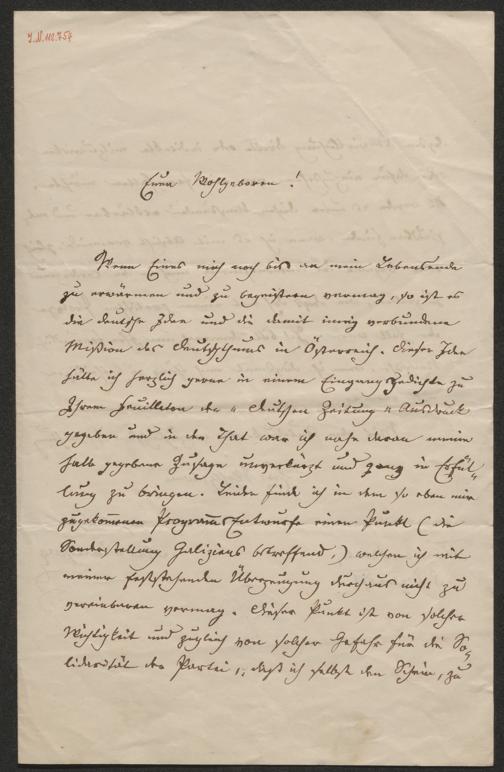 J.N. 110.754
Euer Wohlgeboren!
Wenn Eines mich noch bis an mein Lebensende
zu erwärmen und zu begeistern vermag, so ist es
die deutsche Idee und die damit innig verbundene
Mission des Deutschthums in Österreich. Dieser Idee
hätte ich herzlich gerne in einem Eingangs Gedichte zu
Ihrem Feuilleton der „Deutschen Zeitung" Ausdruck
gegeben und in der That war ich nahe daran meine
halb gegebene Zusage unverkürzt und ganz in Erfül-
lung zu bringen. Leider finde ich in dem so eben mir
zugekommenen Programms Entwurfe einen Punkt (die
Sonderstellung Galiziens betreffend,) welchen ich mit
meiner feststehenden Überzeugung durchaus nicht zu
vereinbaren vermag. Dieser Punkt ist von solcher
Wichtigkeit und zugleich von solcher Gefahr für die So-
lidarität der Partei, daß ich selbst den Schein, zu